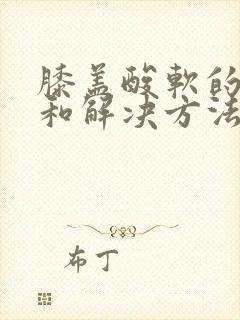 膝盖酸软的
和解决方法
布丁